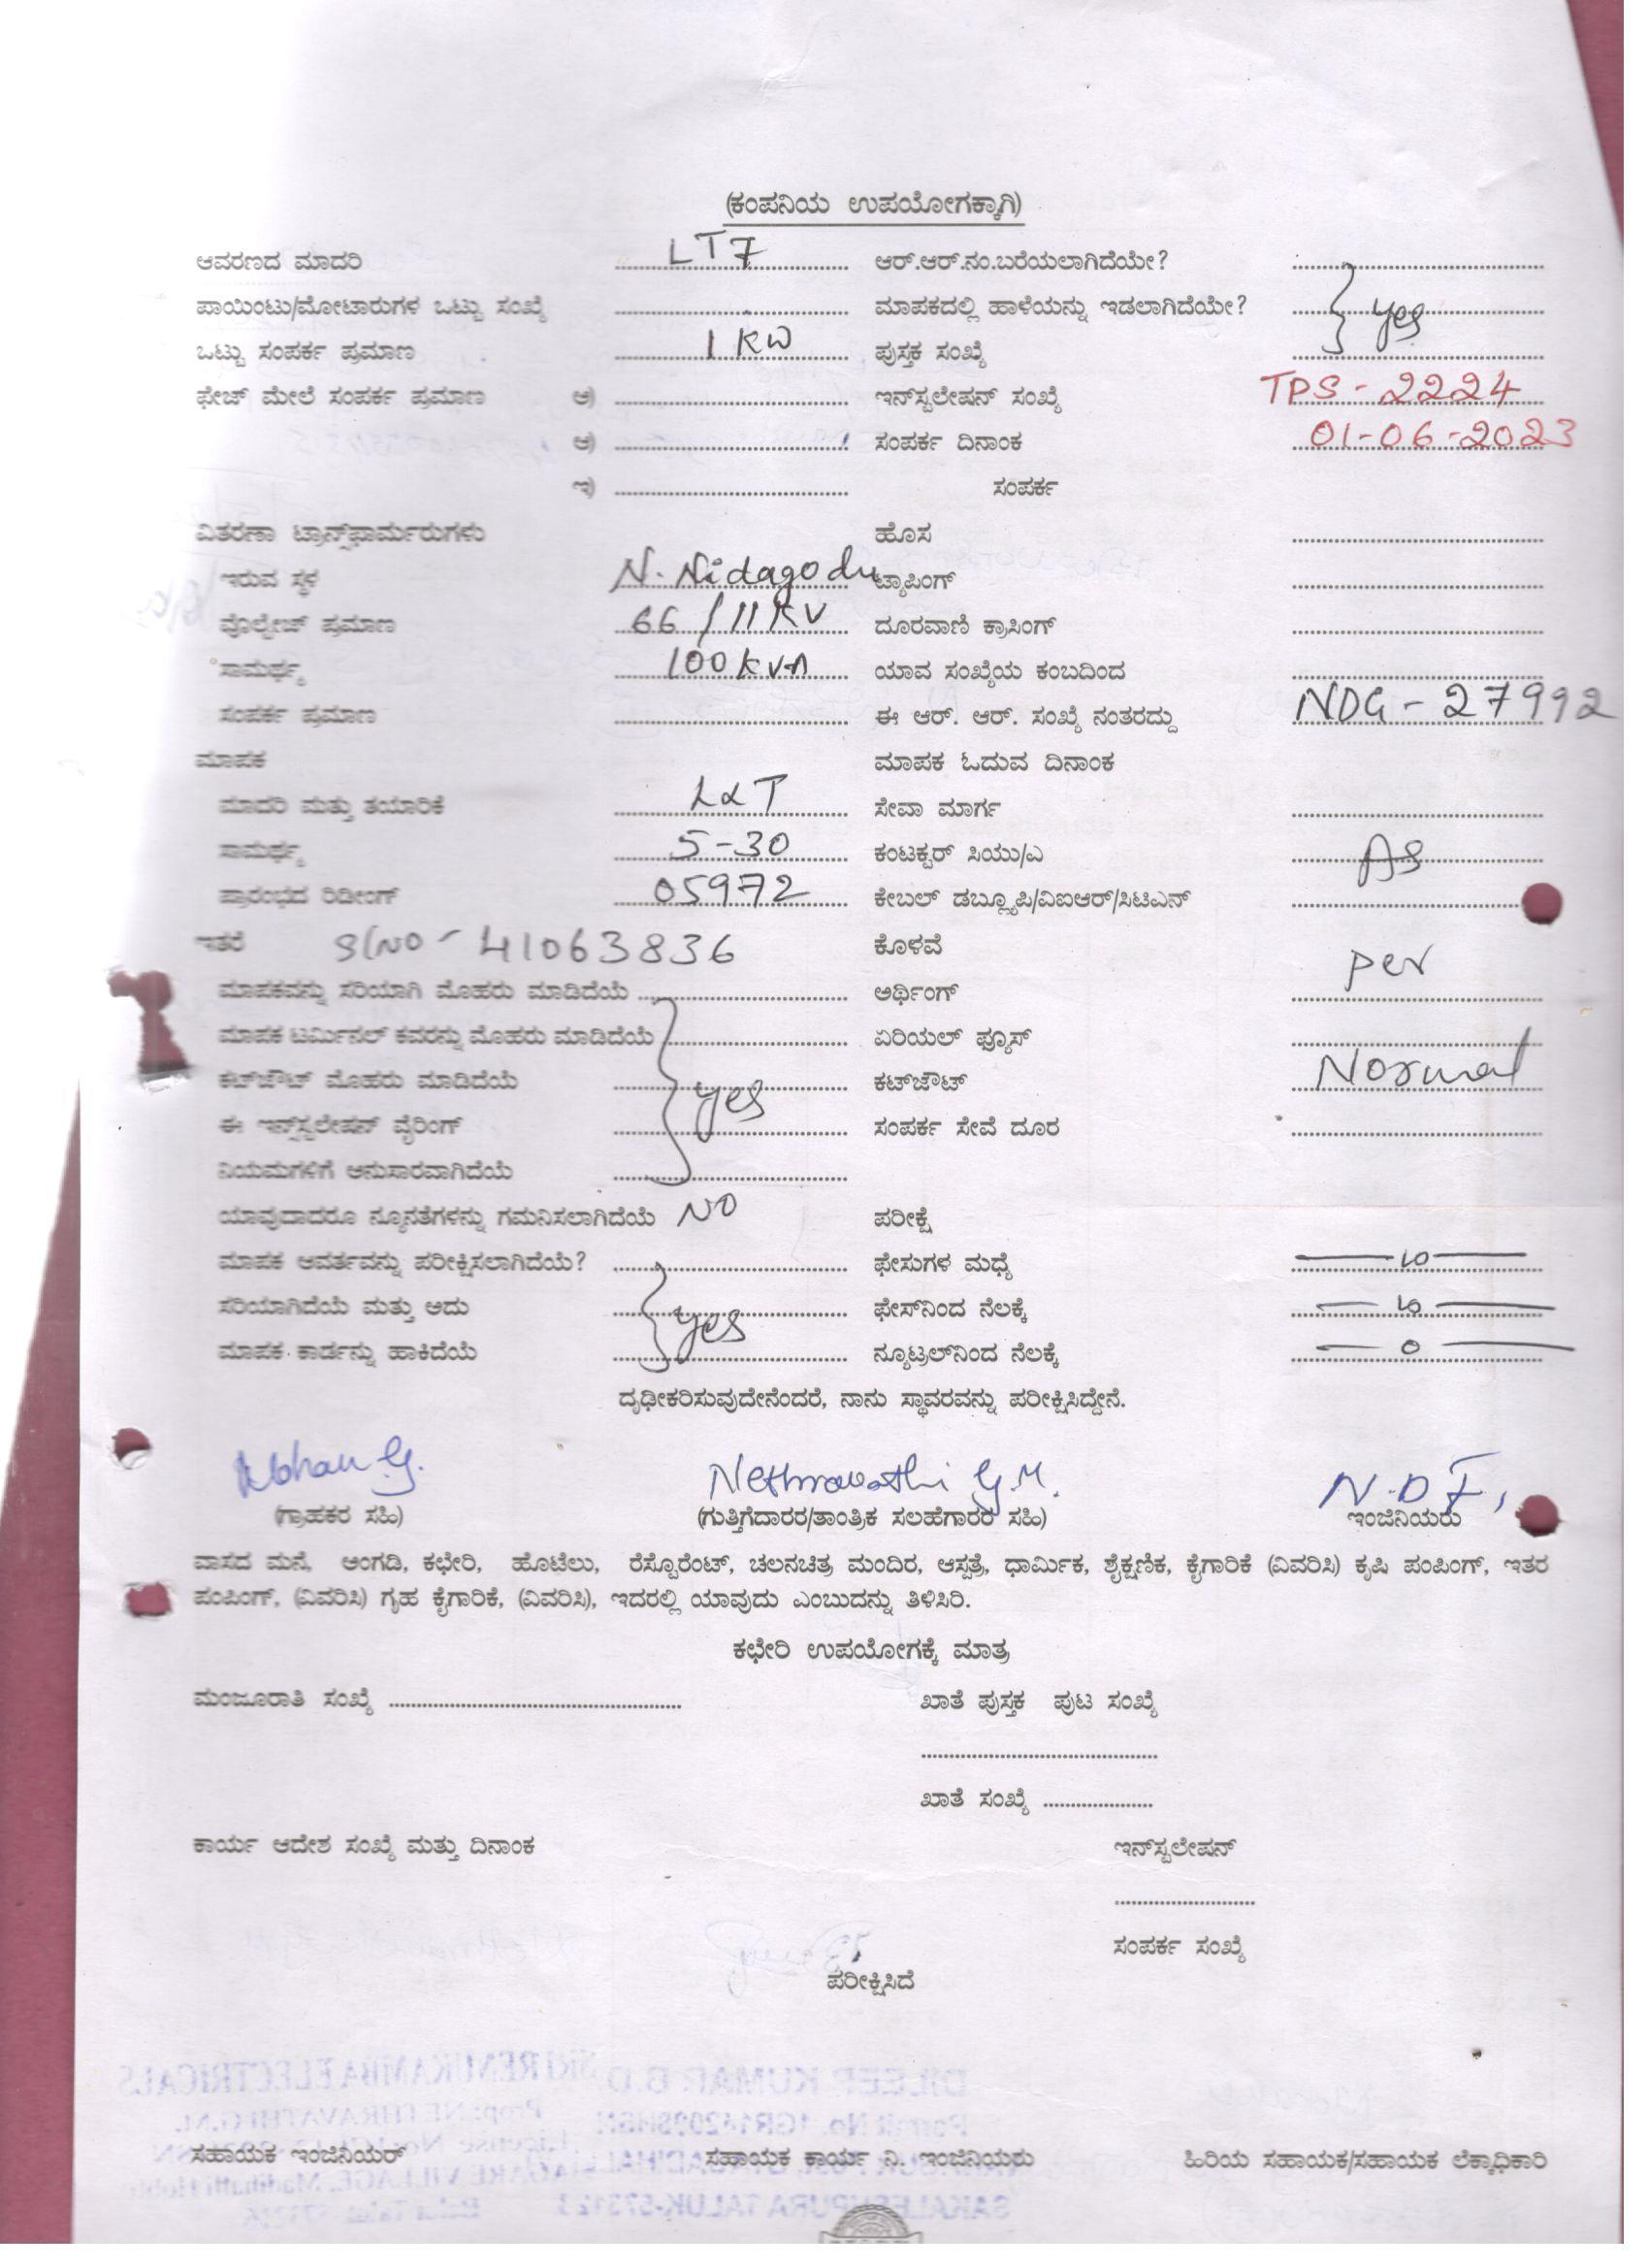 (ಕಂಪನಿಯ ಉಪಯೋಗಕ್ಕಾಗಿ)
ಆವರಣದ ಮಾದರಿ LT7 ಆರ್.ಆರ್.ನಂ.ಬರೆಯಲಾಗಿದೆಯೇ?
ಪಾಯಿಂಟು/ಮೋಟಾರುಗಳ ಒಟ್ಟು ಸಂಖ್ಯೆ ಮಾಪಕದಲ್ಲಿ ಹಾಳೆಯನ್ನು ಇಡಲಾಗಿದೆಯೇ? yes
ಒಟ್ಟು ಸಂಪರ್ಕ ಪ್ರಮಾಣ 1 KW ಪುಸ್ತಕ ಸಂಖ್ಯೆ
ಫೇಜ್ ಮೇಲೆ ಸಂಪರ್ಕ ಪ್ರಮಾಣ ಅ) ಇನ್‌ಸ್ಟಲೇಷನ್ ಸಂಖ್ಯೆ TPS - 2224
ಆ) ಸಂಪರ್ಕ ದಿನಾಂಕ 01-06-2023
ಇ) ಸಂಪರ್ಕ
ವಿತರಣಾ ಟ್ರಾನ್ಸ್‌ಫಾರ್ಮರುಗಳು ಹೊಸ
ಇರುವ ಸ್ಥಳ N. Nidagodu ಟ್ಯಾಪಿಂಗ್
ವೊಲ್ಟೇಜ್ ಪ್ರಮಾಣ 66 / 11 KV ದೂರವಾಣಿ ಕ್ರಾಸಿಂಗ್
ಸಾಮರ್ಥ್ಯ 100 KVA ಯಾವ ಸಂಖ್ಯೆಯ ಕಂಬದಿಂದ
ಸಂಪರ್ಕ ಪ್ರಮಾಣ ಈ ಆರ್. ಆರ್. ಸಂಖ್ಯೆ ನಂತರದ್ದು NDG - 27992
ಮಾಪಕ ಮಾಪಕ ಓದುವ ದಿನಾಂಕ
ಮಾದರಿ ಮತ್ತು ತಯಾರಿಕೆ L&T ಸೇವಾ ಮಾರ್ಗ
ಸಾಮರ್ಥ್ಯ 5-30 ಕಂಟಕ್ಟರ್ ಸಿಯು/ಎ As
ಪ್ರಾರಂಭದ ರಿಡೀಂಗ್ 05972 ಕೇಬಲ್ ಡಬ್ಲ್ಯೂಪಿ/ವಿಐಆರ್/ಸಿಟಿಎನ್
ಇತರೆ Sl No - 41063836 ಕೊಳವೆ per
ಮಾಪಕವನ್ನು ಸರಿಯಾಗಿ ಮೊಹರು ಮಾಡಿದೆಯೆ ಅರ್ಥಿಂಗ್
ಮಾಪಕ ಟರ್ಮಿನಲ್ ಕವರನ್ನು ಮೊಹರು ಮಾಡಿದೆಯೆ ಏರಿಯಲ್ ಫ್ಯೂಸ್
ಕಟ್‌ಔಟ್ ಮೊಹರು ಮಾಡಿದೆಯೆ yes ಕಟ್‌ಔಟ್ Normal
ಈ ಇನ್ಸ್‌ಸ್ಟಲೇಷನ್ ವೈರಿಂಗ್ ಸಂಪರ್ಕ ಸೇವೆ ದೂರ
ನಿಯಮಗಳಿಗೆ ಅನುಸಾರವಾಗಿದೆಯೆ
ಯಾವುದಾದರೂ ನ್ಯೂನತೆಗಳನ್ನು ಗಮನಿಸಲಾಗಿದೆಯೆ NO ಪರೀಕ್ಷೆ
ಮಾಪಕ ಆವರ್ತವನ್ನು ಪರೀಕ್ಷಿಸಲಾಗಿದೆಯೆ? ಫೇಸುಗಳ ಮಧ್ಯೆ
ಸರಿಯಾಗಿದೆಯೆ ಮತ್ತು ಅದು yes ಫೇಸ್‌ನಿಂದ ನೆಲಕ್ಕೆ
ಮಾಪಕ ಕಾರ್ಡನ್ನು ಹಾಕಿದೆಯೆ ನ್ಯೂಟ್ರಲ್‌ನಿಂದ ನೆಲಕ್ಕೆ 0
ದೃಢೀಕರಿಸುವುದೇನೆಂದರೆ, ನಾನು ಸ್ಥಾವರವನ್ನು ಪರೀಕ್ಷಿಸಿದ್ದೇನೆ.
Mohan G. Nethravathi G.M.
(ಗ್ರಾಹಕರ ಸಹಿ) (ಗುತ್ತಿಗೆದಾರರ/ತಾಂತ್ರಿಕ ಸಲಹೆಗಾರರ ಸಹಿ) ಇಂಜಿನಿಯರು
ವಾಸದ ಮನೆ, ಅಂಗಡಿ, ಕಛೇರಿ, ಹೊಟೆಲು, ರೆಸ್ಟೊರೆಂಟ್, ಚಲನಚಿತ್ರ ಮಂದಿರ, ಆಸ್ಪತ್ರೆ, ಧಾರ್ಮಿಕ, ಶೈಕ್ಷಣಿಕ, ಕೈಗಾರಿಕೆ (ವಿವರಿಸಿ) ಕೃಷಿ ಪಂಪಿಂಗ್, ಇತರ
ಪಂಪಿಂಗ್, (ವಿವರಿಸಿ) ಗೃಹ ಕೈಗಾರಿಕೆ, (ವಿವರಿಸಿ), ಇದರಲ್ಲಿ ಯಾವುದು ಎಂಬುದನ್ನು ತಿಳಿಸಿರಿ.
ಕಛೇರಿ ಉಪಯೋಗಕ್ಕೆ ಮಾತ್ರ
ಮಂಜೂರಾತಿ ಸಂಖ್ಯೆ ಖಾತೆ ಪುಸ್ತಕ ಪುಟ ಸಂಖ್ಯೆ
ಖಾತೆ ಸಂಖ್ಯೆ
ಕಾರ್ಯ ಆದೇಶ ಸಂಖ್ಯೆ ಮತ್ತು ದಿನಾಂಕ ಇನ್‌ಸ್ಟಲೇಷನ್
ಸಂಪರ್ಕ ಸಂಖ್ಯೆ
ಪರೀಕ್ಷಿಸಿದೆ
ಸಹಾಯಕ ಇಂಜಿನಿಯರ್ ಸಹಾಯಕ ಕಾರ್ಯ ನಿ. ಇಂಜಿನಿಯರು ಹಿರಿಯ ಸಹಾಯಕ/ಸಹಾಯಕ ಲೆಕ್ಕಾಧಿಕಾರಿ